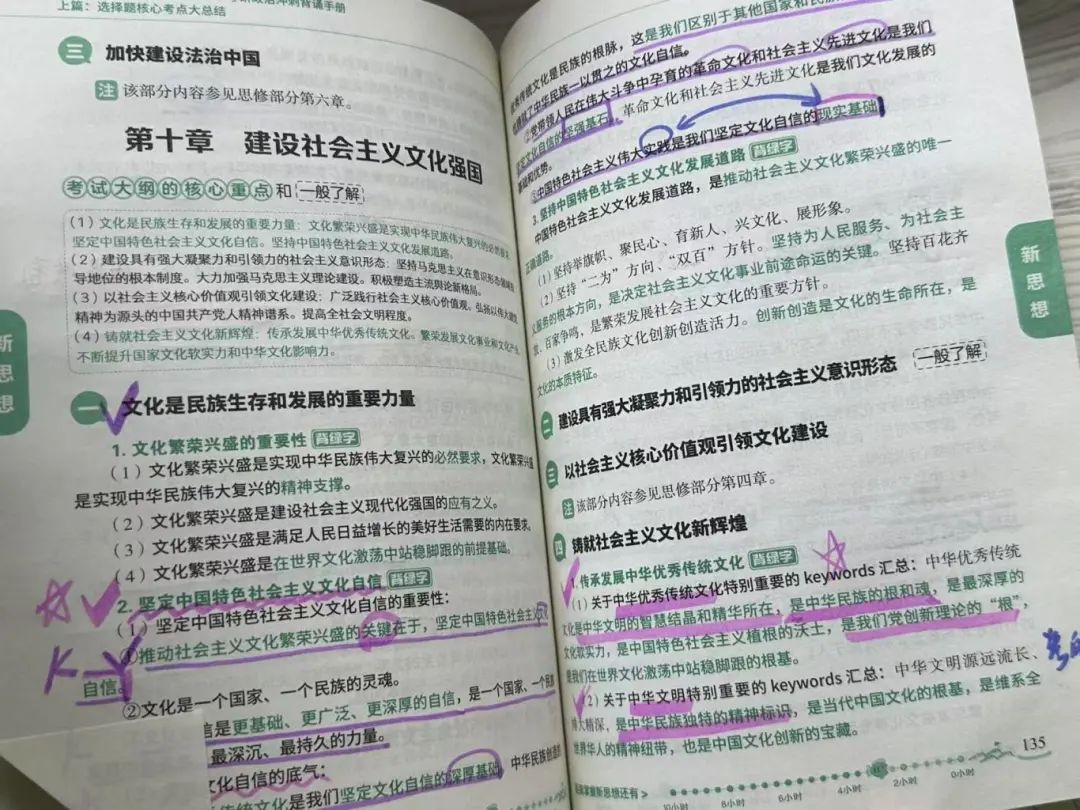 上篇：选择题核心考点大总结
三 加快建设法治中国
注 该部分内容参见思修部分第六章。
第十章 建设社会主义文化强国
考试大纲的核心重点和一般了解
（1）文化是民族生存和发展的重要力量：文化繁荣兴盛是实现中华民族伟大复兴的必然要求
坚定中国特色社会主义文化自信。坚持中国特色社会主义文化发展道路。
（2）建设具有强大凝聚力和引领力的社会主义意识形态：坚持马克思主义在意识形态领域指
导地位的根本制度。大力加强马克思主义理论建设。积极塑造主流舆论新格局。
（3）以社会主义核心价值观引领文化建设：广泛践行社会主义核心价值观。弘扬以伟大建党
精神为源头的中国共产党人精神谱系。提高全社会文明程度。
（4）铸就社会主义文化新辉煌：传承发展中华优秀传统文化。繁荣发展文化事业和文化产业
不断提升国家文化软实力和中华文化影响力。
一 文化是民族生存和发展的重要力量
1. 文化繁荣兴盛的重要性 背绿字
（1）文化繁荣兴盛是实现中华民族伟大复兴的必然要求，文化繁荣兴盛
是实现中华民族伟大复兴的精神支撑。
（2）文化繁荣兴盛是建设社会主义现代化强国的应有之义。
（3）文化繁荣兴盛是满足人民日益增长的美好生活需要的内在要求。
（4）文化繁荣兴盛是在世界文化激荡中站稳脚跟的前提基础。
2. 坚定中国特色社会主义文化自信 背绿字
（1）坚定中国特色社会主义文化自信的重要性：
①推动社会主义文化繁荣兴盛的关键在于，坚定中国特色社会主义
自信。
②文化是一个国家、一个民族的灵魂。
信是更基础、更广泛、更深厚的自信，是一个国家、一个民
最深沉、最持久的力量。
文化自信的底气：
传统文化是我们坚定文化自信的深厚基础 中华民族创造的
新思想
传统文化是民族的根脉，这是我们区别于其他国家和民族
了中华民族一以贯之的文化自信。
②党带领人民在伟大斗争中孕育的革命文化和社会主义先进文化是我们
坚定文化自信的坚强基石。革命文化和社会主义先进文化是我们文化发展的
基础和优势。
③中国特色社会主义伟大实践是我们坚定文化自信的现实基础
3. 坚持中国特色社会主义文化发展道路 背绿字
中国特色社会主义文化发展道路，是推动社会主义文化繁荣兴盛的唯一
正确道路。
（1）坚持举旗帜、聚民心、育新人、兴文化、展形象。
（2）坚持“二为”方向、“双百”方针。坚持为人民服务、为社会主
义服务的根本方向，是决定社会主义文化事业前途命运的关键。坚持百花齐
放、百家争鸣，是繁荣发展社会主义文化的重要方针。
（3）激发全民族文化创新创造活力。创新创造是文化的生命所在，是
文化的本质特征。
二 建设具有强大凝聚力和引领力的社会主义意识形态 一般了解
三 以社会主义核心价值观引领文化建设
注 该部分内容参见思修部分第四章。
四 铸就社会主义文化新辉煌
1. 传承发展中华优秀传统文化 背绿字
（1）关于中华优秀传统文化特别重要的 keywords 汇总：中华优秀传统
文化是中华文明的智慧结晶和精华所在，是中华民族的根和魂，是最深厚的
文化软实力，是中国特色社会主义植根的沃土，是我们党创新理论的“根”，
是我们在世界文化激荡中站稳脚跟的根基。
（2）关于中华文明特别重要的 keywords 汇总：中华文明源远流长、
博大精深，是中华民族独特的精神标识，是当代中国文化的根基，是维系全
世界华人的精神纽带，也是中国文化创新的宝藏。
新思想
135
掌握新思想还有>
10小时 8小时 6小时 4小时 2小时 0小时